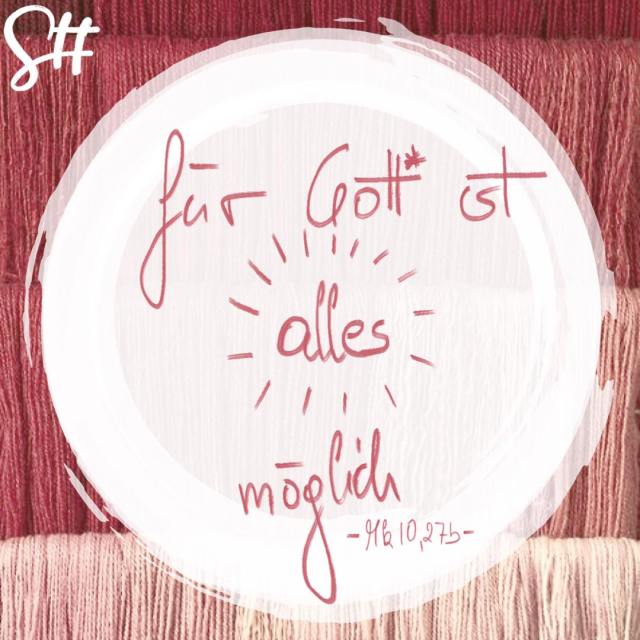 SH
für Gott* ist
alles
möglich
- Mk 10,27b -